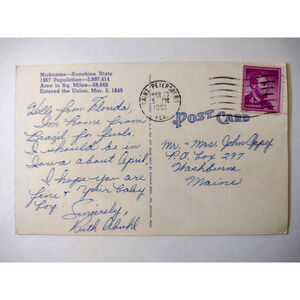 Nickname—Sunshine State
1957 Population—3,997,414
Area in Sq. Miles—58,666
Entered the Union, Mar. 3, 1845
SAINT PETERSBURG
MAR 13
5 PM
1961
FLA.
POST CARD
Hello from Florida,
I'm home from
Brazil for furls.
I should be in
Iowa about April
I hope you are
fine & your baby
too.
Sincerely,
Ruth
Mr. & Mrs. John
P.O. Box 297
Washburn
Maine